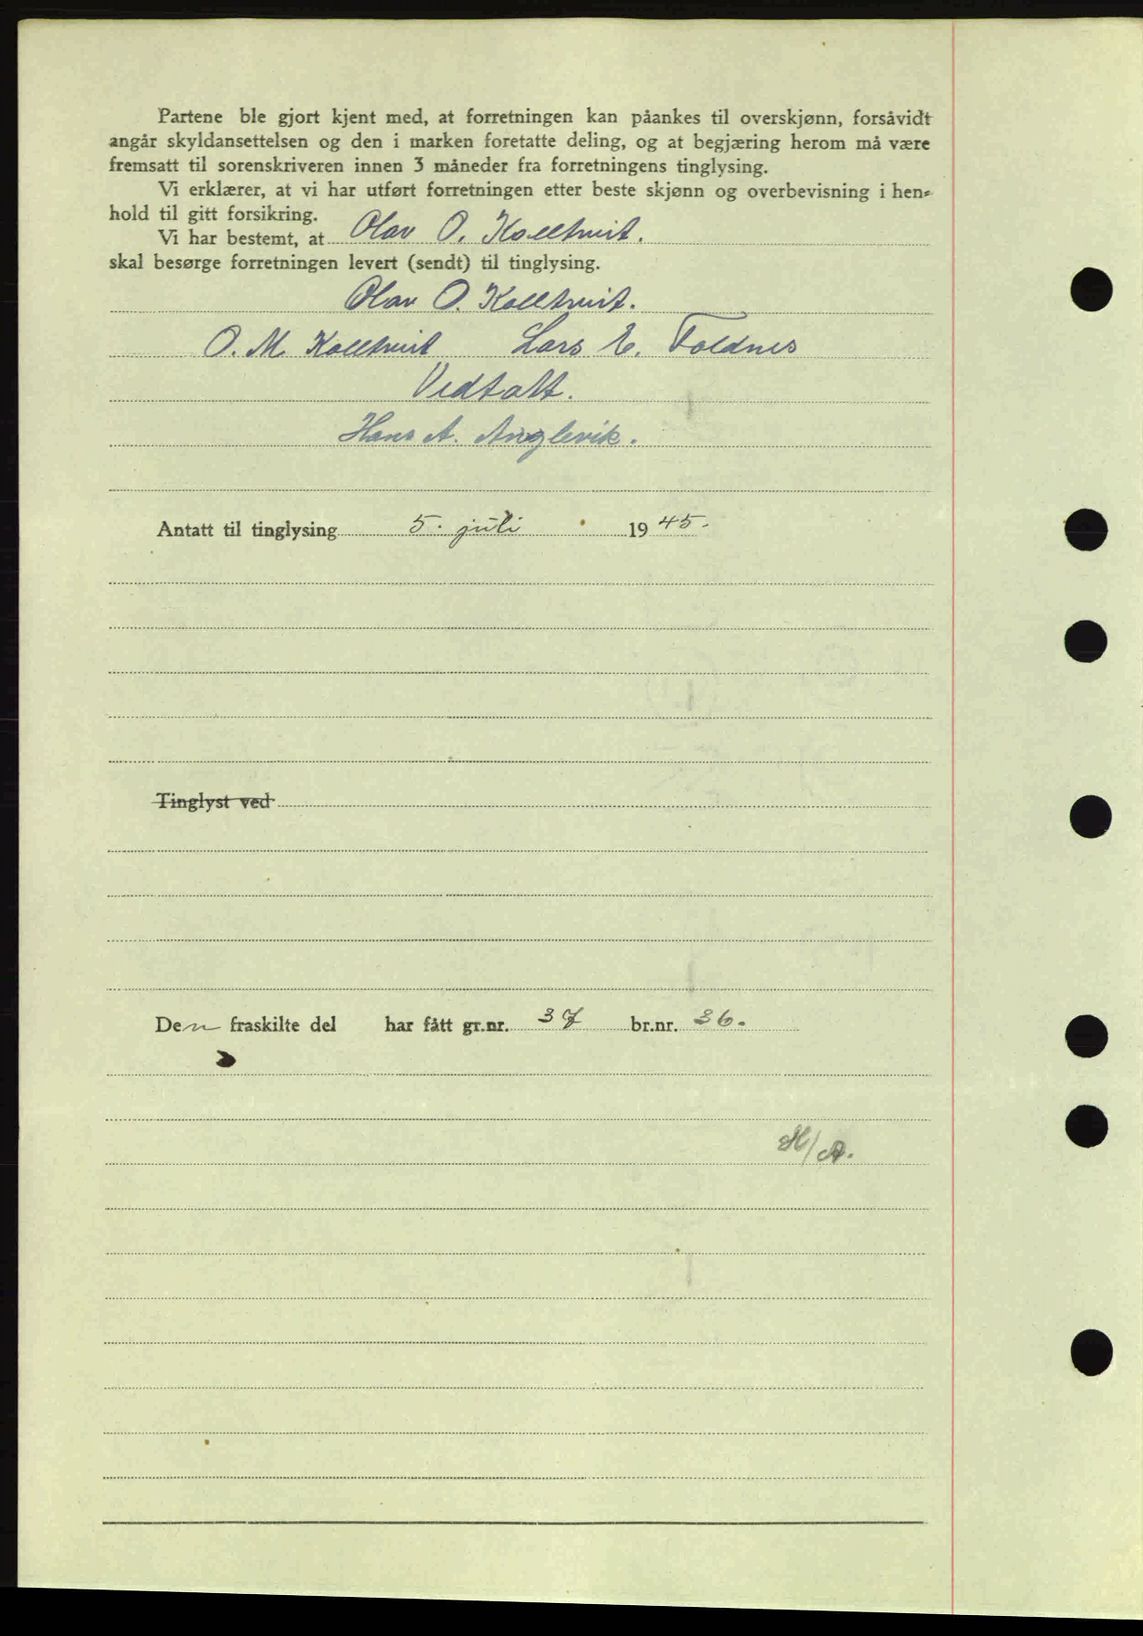 Partene ble gjort kjent med, at forretningen kan påankes til overskjønn, forsåvidt
angår skyldansettelsen og den i marken foretatte deling, og at begjæring herom må være
fremsatt til sorenskriveren innen 3 måneder fra forretningens tinglysing.
Vi erklærer, at vi har utført forretningen etter beste skjønn og overbevisning i hen-
hold til gitt forsikring.
Vi har bestemt, at Olav O. Kolltveit.
skal besørge forretningen levert (sendt) til tinglysing.
Olav O. Kolltveit.
O. M. Kolltveit Lars E. Foldnes
Vedtatt.
Hans A. Anglevik.
Antatt til tinglysing 5. juli 1945.
Tinglyst ved
Den fraskilte del har fått gr.nr. 37 br.nr. 36.
H/A.